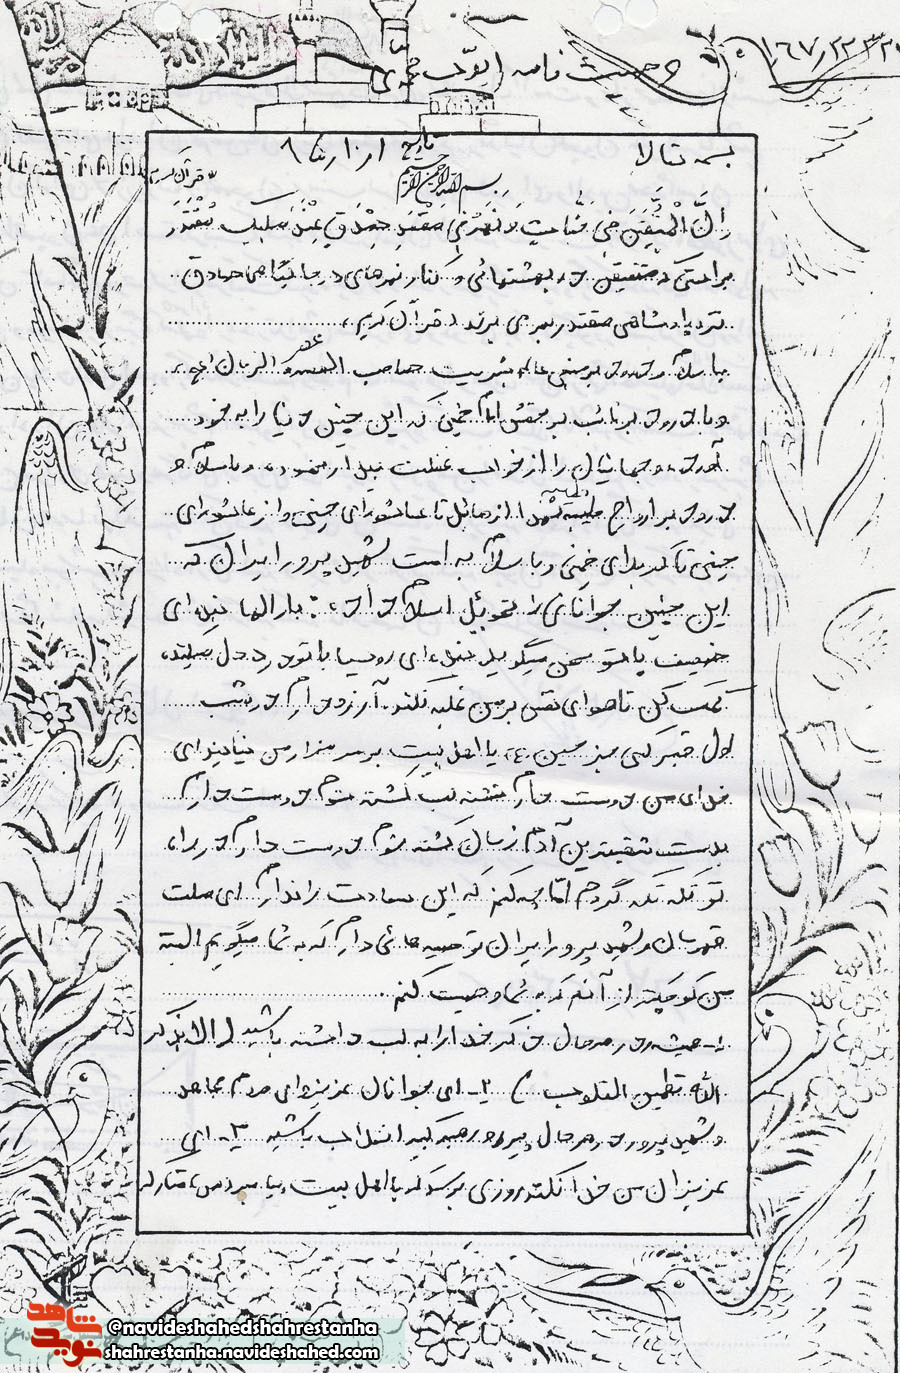 وصیت نامه ایوب
بسمه تعالا تاریخ
بسم الله الرحمن الرحیم
قرآن
اِنَّ الْمُتَّقینَ فی جَنّاتٍ وَ نَهَرٍ فی مَقْعَدِ صِدْقٍ عِنْدَ مَلیکٍ مُقْتَدِر
براستی که متقین در بهشتهائی و کنار نهرهای در جایگاهی صادق
نزد پادشاهی مقتدر بسر می برند. قرآن کریم
با سلام و درود بر منجی عالم بشریت صاحب العصر و الزمان
و با درود بر نائب بر حقش امام خمینی که این چنین دنیا را به خود
آورده و جهانیان را از خواب غفلت بیدار نموده و با سلام و
درود بر ارواح طیبه شهدا از هابیل تا عاشورای حسینی و از عاشورای
حسینی تا کربلای خمینی و با سلام به امت شهید پرور ایران که
این چنین جوانانی را تحویل اسلام داده. بارالها بنده ای
ضعیف با تو سخن میگوید بنده ای روسیا با تو درد دل میکند،
کمک کن تا هوای نفس بر من غلبه نکند. آرزو دارم در شب
اول قبر کسی جز حسین (ع) یا اهل بیت بر سر مزار من نیاید ای
خدای من دوست دارم تشنه لب کشته شوم دوست دارم
بدست شقیترین آدم زمان کشته شوم دوست دارم در راه
تو تکه تکه گردم امّا چه کنم که این سعادت را ندارم ای ملت
قهرمان و شهید پرور ایران توصیه هائی دارم که به شما میگویم البته
من کوچکتر از آنم که به شما وصیت کنم.
۱- همیشه و در هر حال ذکر خدا را به لب داشته باشید الا بذکر
الله تطمئن القلوب ۲- ای جوانان عزیز و ای مردم مجاهد
و شهید پرور در هر حال پیرو رهبر کبیر انقلاب باشید ۳- ای
عزیزان من خدا نکند روزی برسد که با اهل بیت پیامبر
نوید شاهد
©navideshahedshahrestanha
shahrestanha.navideshahed.com